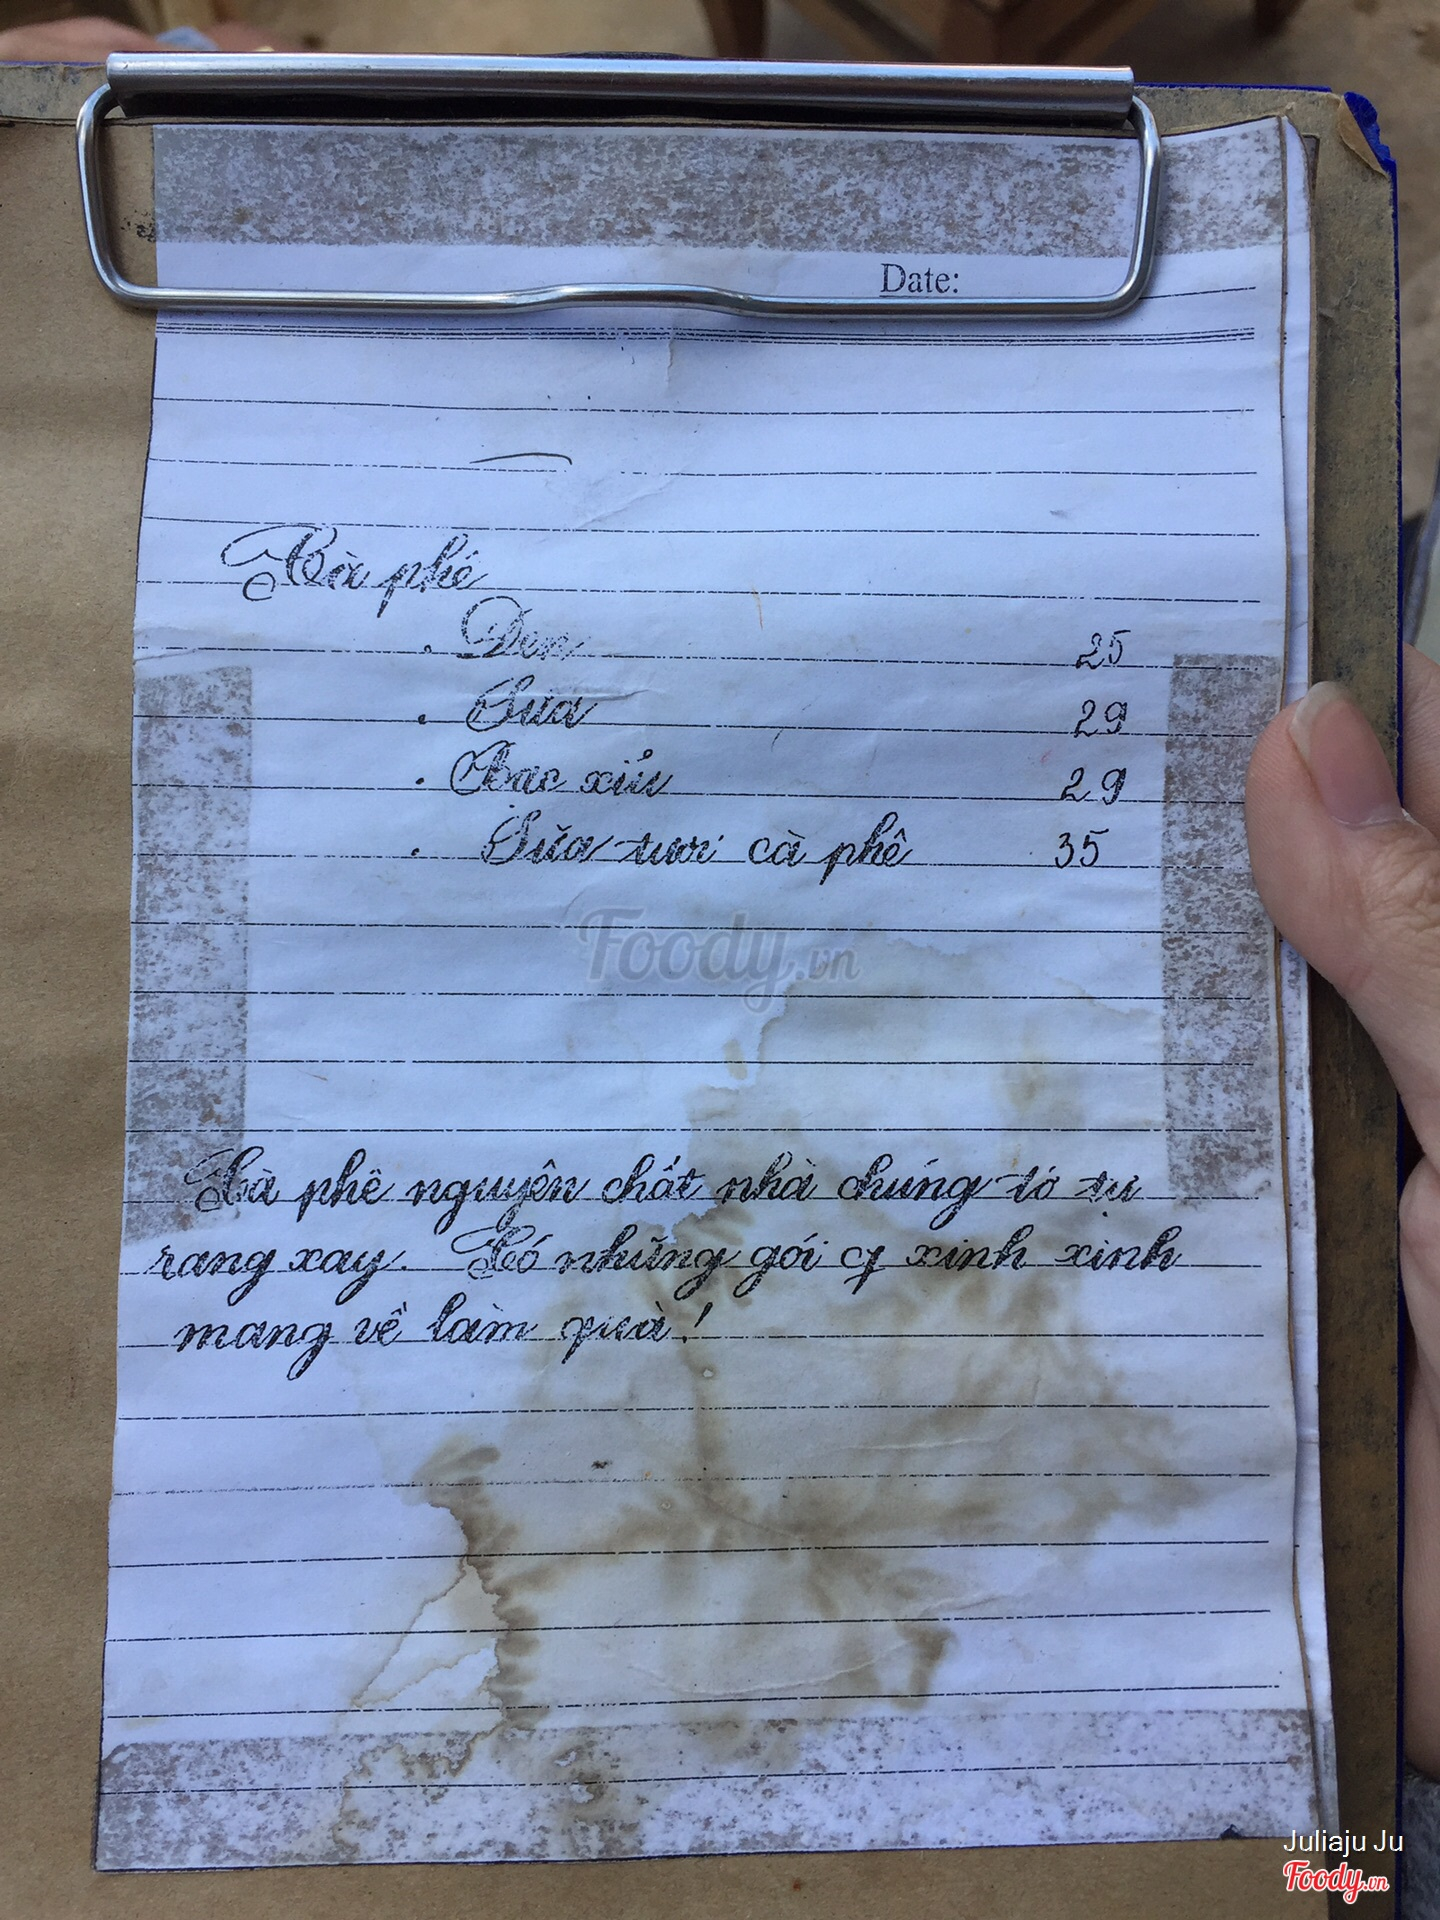 Date:
Cà phê
. Đen 25
. Sữa 29
. Bạc xỉu 29
. Sữa tươi cà phê 35
Foody.vn
Cà phê nguyên chất nhà chúng tớ tự
rang xay. Có những gói cf xinh xinh
mang về làm quà!
Juliaju Ju
Foody.vn